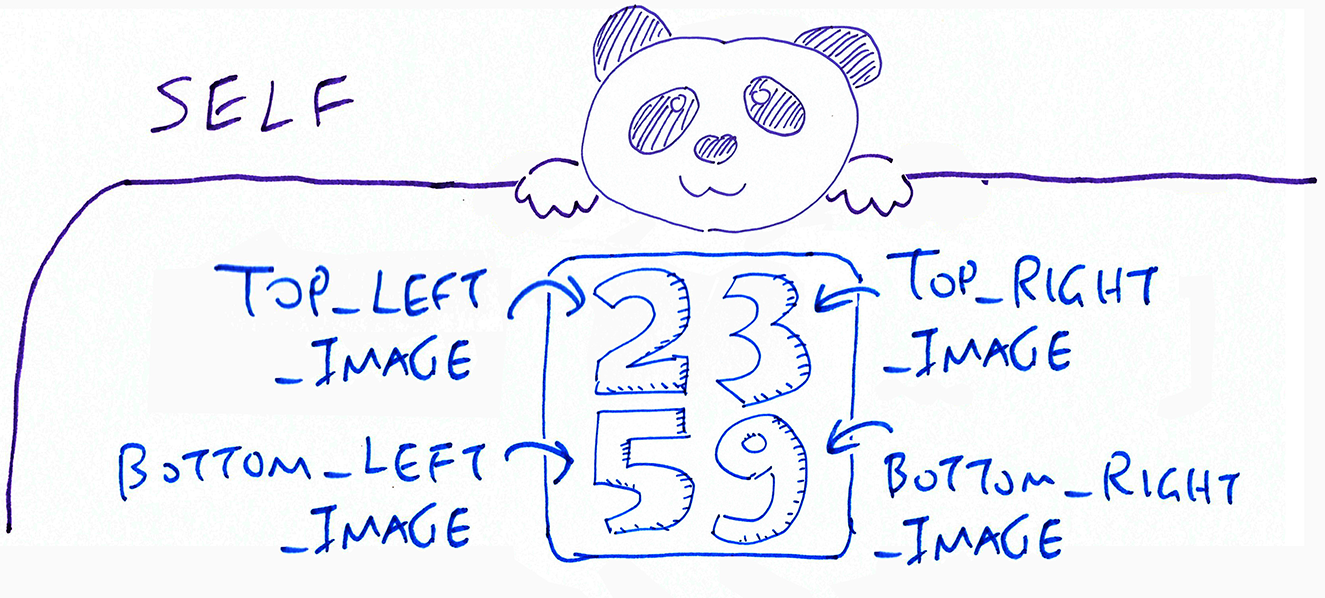 SELF
TOP_LEFT
_IMAGE
23
TOP_RIGHT
_IMAGE
BOTTOM_LEFT
_IMAGE
59
BOTTOM_RIGHT
_IMAGE